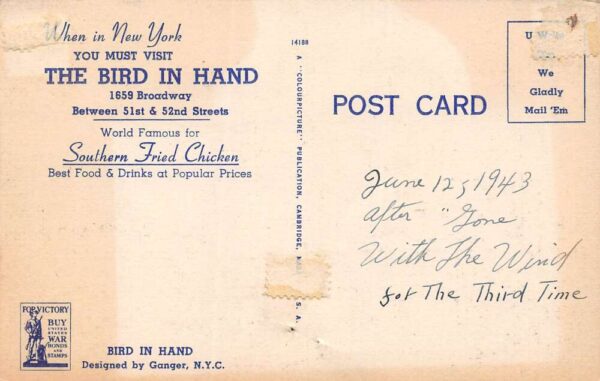 When in New York
YOU MUST VISIT
THE BIRD IN HAND
1659 Broadway
Between 51st & 52nd Streets
World Famous for
Southern Fried Chicken
Best Food & Drinks at Popular Prices
FOR VICTORY
BUY
UNITED
STATES
WAR
BONDS
AND
STAMPS
BIRD IN HAND
Designed by Ganger, N.Y.C.
14188
A "COLOURPICTURE" PUBLICATION, CAMBRIDGE, S. A.
POST CARD
U
We
Gladly
Mail 'Em
June 12, 1943
after "Gone
With The Wind
for The Third Time